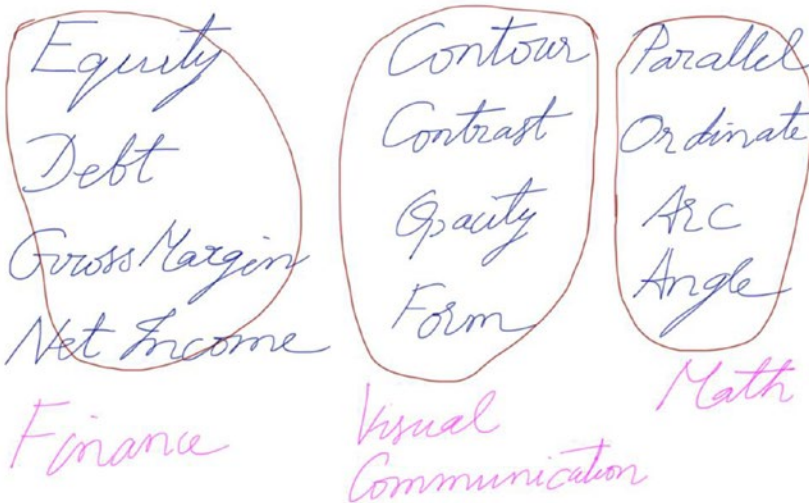 Equity
Debt
Gross Margin
Net Income
Finance
Contour
Contrast
Opacity
Form
Visual
Communication
Parallel
Ordinate
Arc
Angle
Math